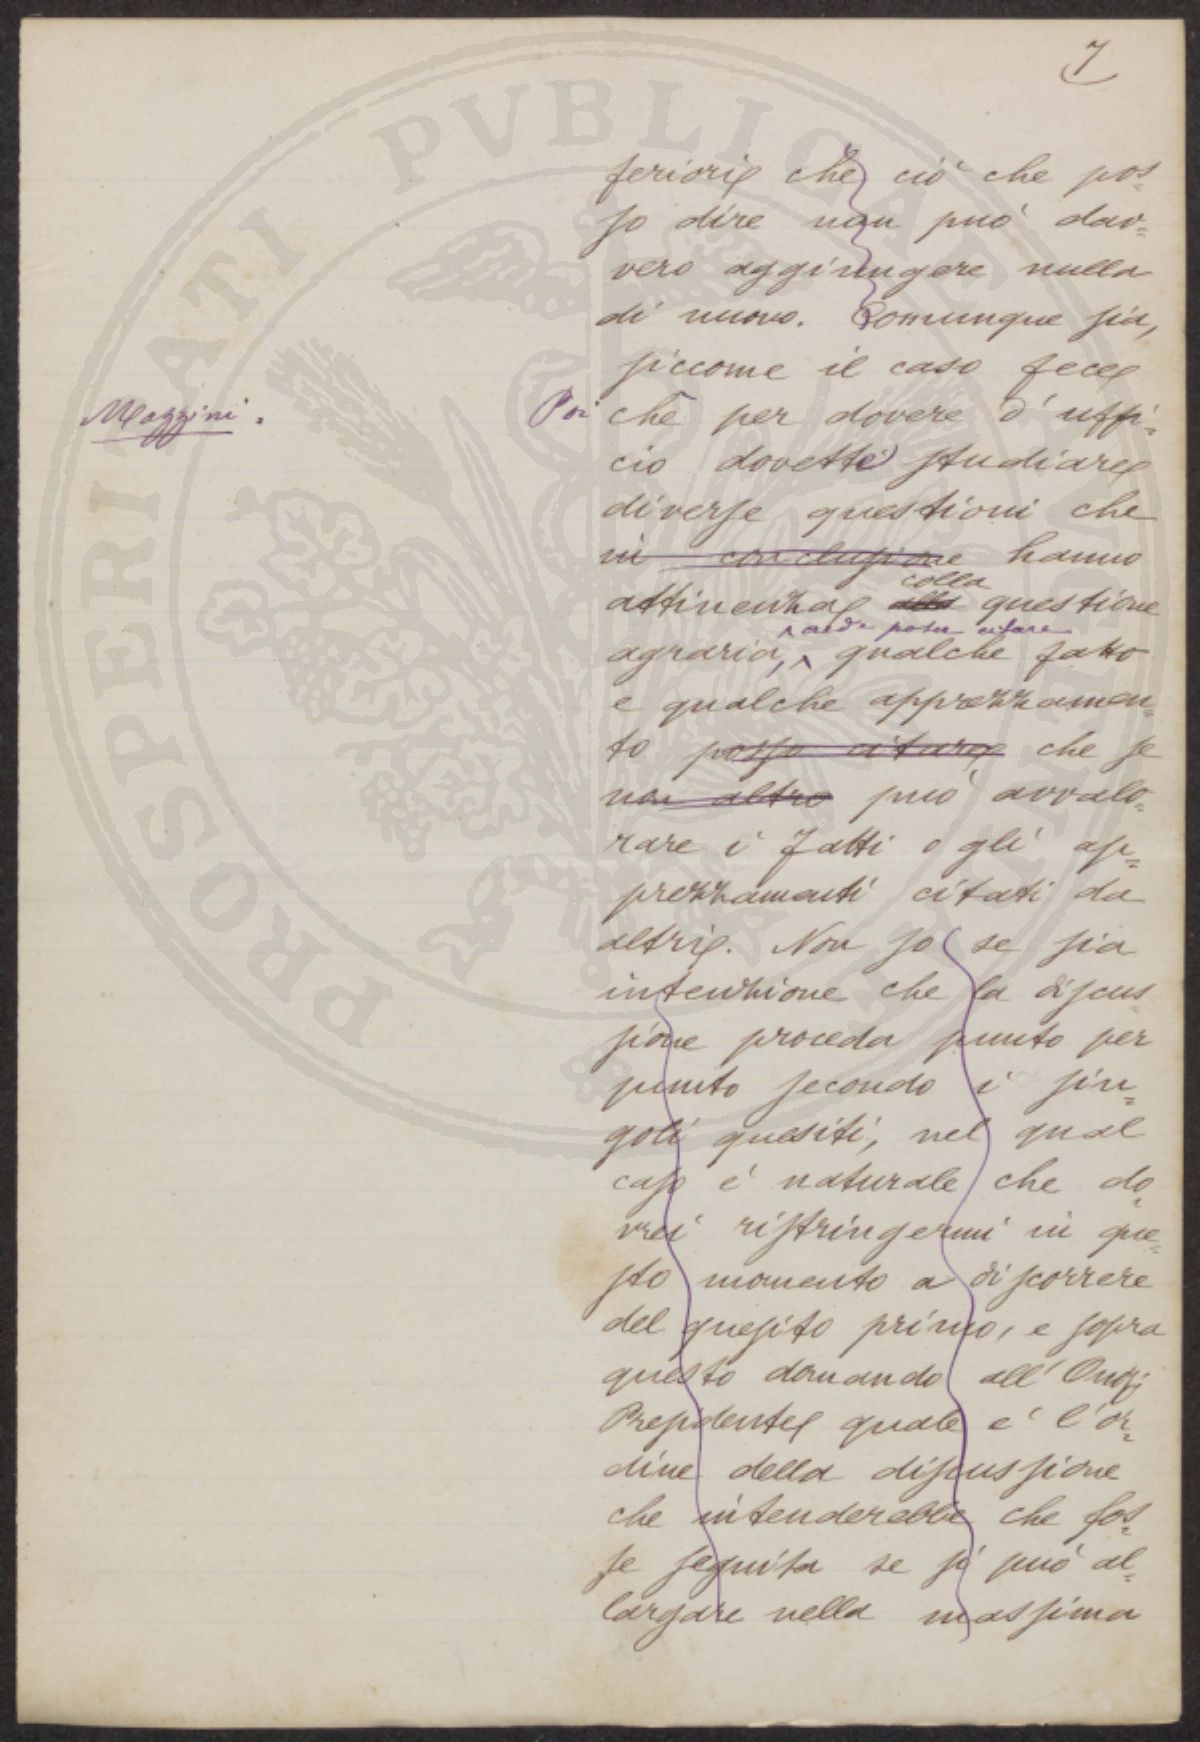 7
feriori che ciò che pos=
so dire non può dav=
vero aggiungere nulla
di nuovo. Comunque sia,
siccome il caso fece
Mazzini. Poi chè per dovere d'uffi=
cio dovetti studiare
diverse questioni che
in conclusione hanno
attinenza alla colla questione
agraria, credo poter citare qualche fatto
e qualche apprezzamen=
to posso citare che se
non altro può avvalo=
rare i fatti o gli ap=
prezzamenti citati da
altri. Non so se sia
intenzione che la discus
sione proceda punto per
punto secondo i sin=
goli quesiti, nel qual
caso è naturale che do=
vrei ristringermi in que=
sto momento a discorrere
del quesito primo, e sopra
questo domando all'
Presidente quale è l'or=
dine della discussione
che intenderebbe che fos=
se seguita se si può al=
largare nella massima
PROSPERITATI PVBLICAE